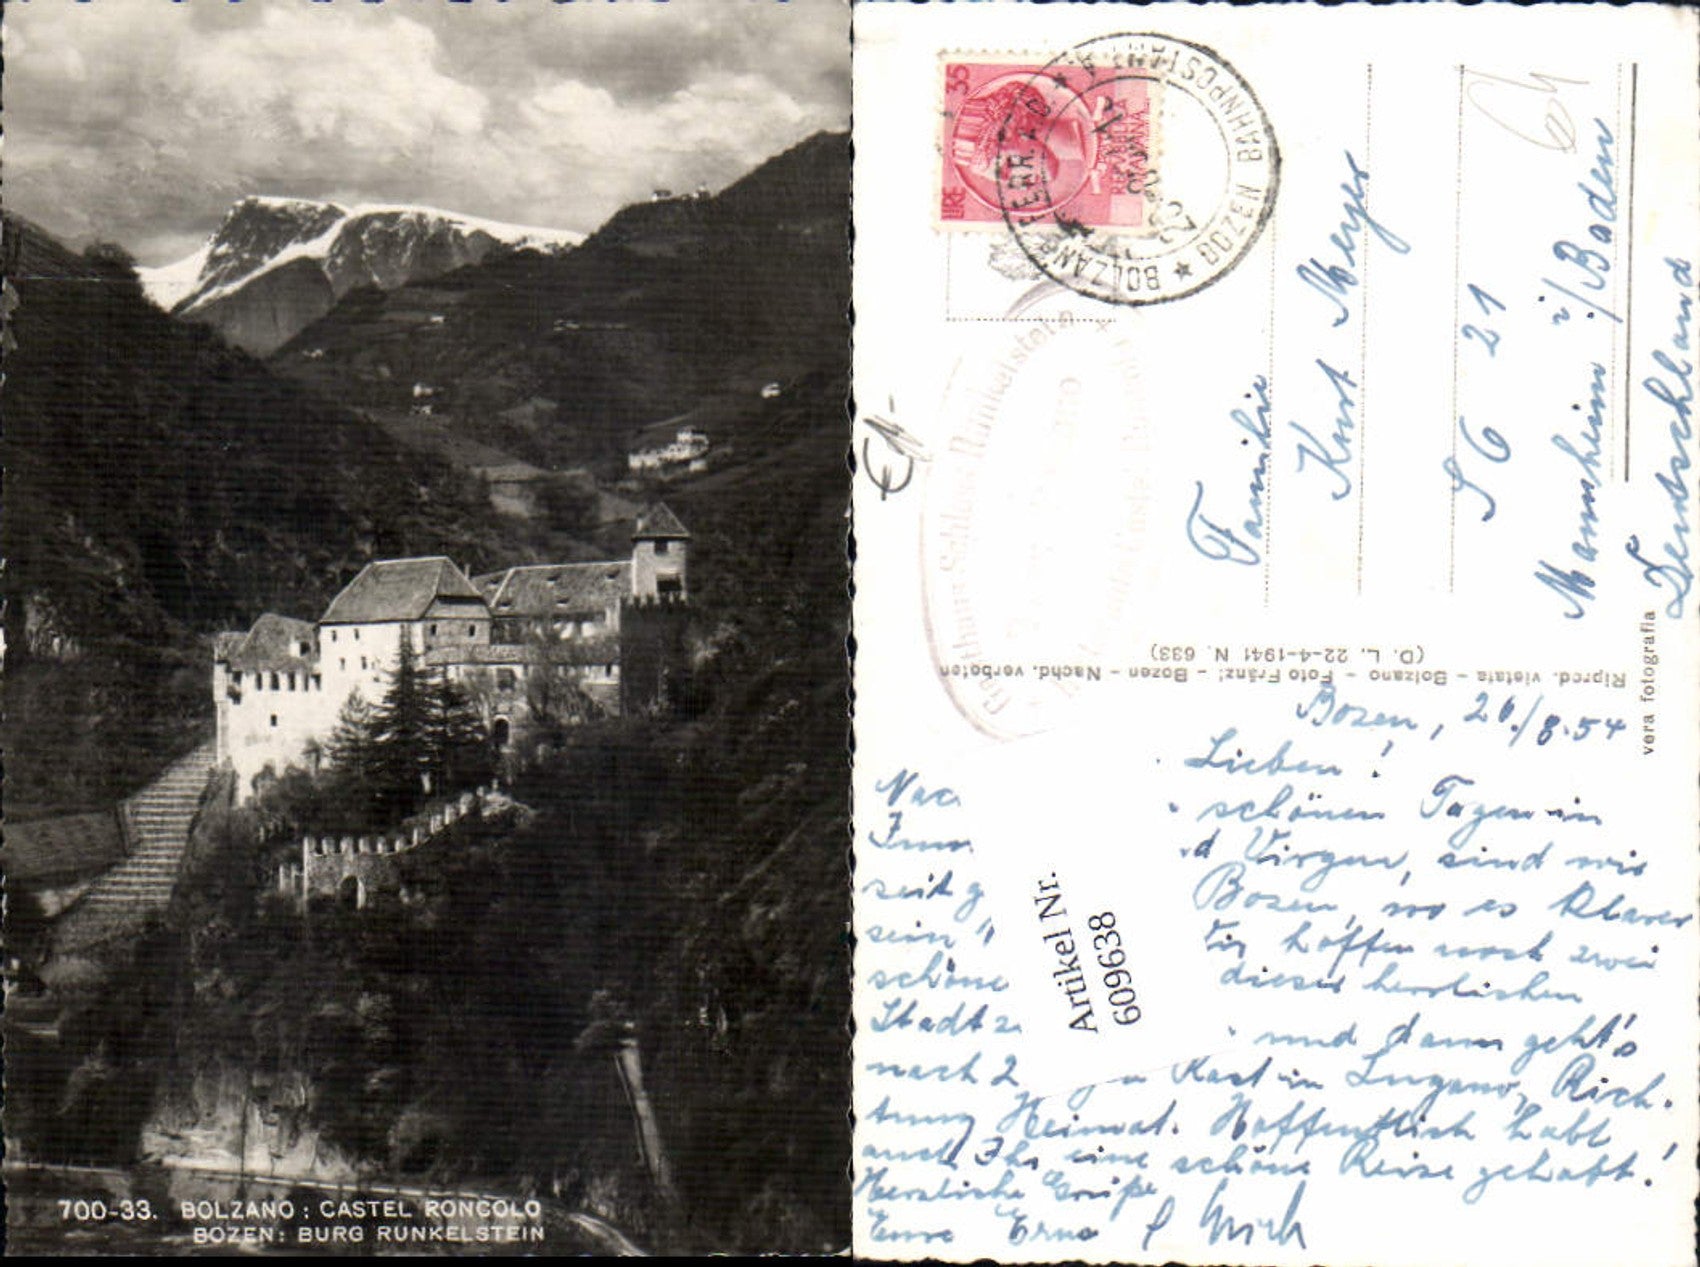 700-33. BOLZANO: CASTEL RONCOLO
BOZEN: BURG RUNKELSTEIN
LIRE 35
REPUBBLICA
ITALIANA
BOLZANO FERR. A.D. ★ BOZEN BAHNPOSTAMT A. ★
Gasthaus Schloss Runkelstein
64
Familie
Kurt Meyer
S 6 21
Mannheim i/Baden
Deutschland
Riprod. vietata - Bolzano - Foto Fränzl - Bozen - Nachd. verboten
(D. L. 22-4-1941 N. 633)
vera fotografia
Bozen, 26./8.54
Lieben!
Nac schönen Tagen in
d Virgen, sind wir
seit g Bozen, wo es
sein hoffen noch zwei
schöne dieser herrlichen
Stadt z und dann geht's
nach 2 Rast in Lugano, Rich-
tung Heimat. Hoffentlich habt
auch Ihr eine schöne Reise gehabt!
Herzliche Grüße
Eure Erna
Artikel Nr.
609638